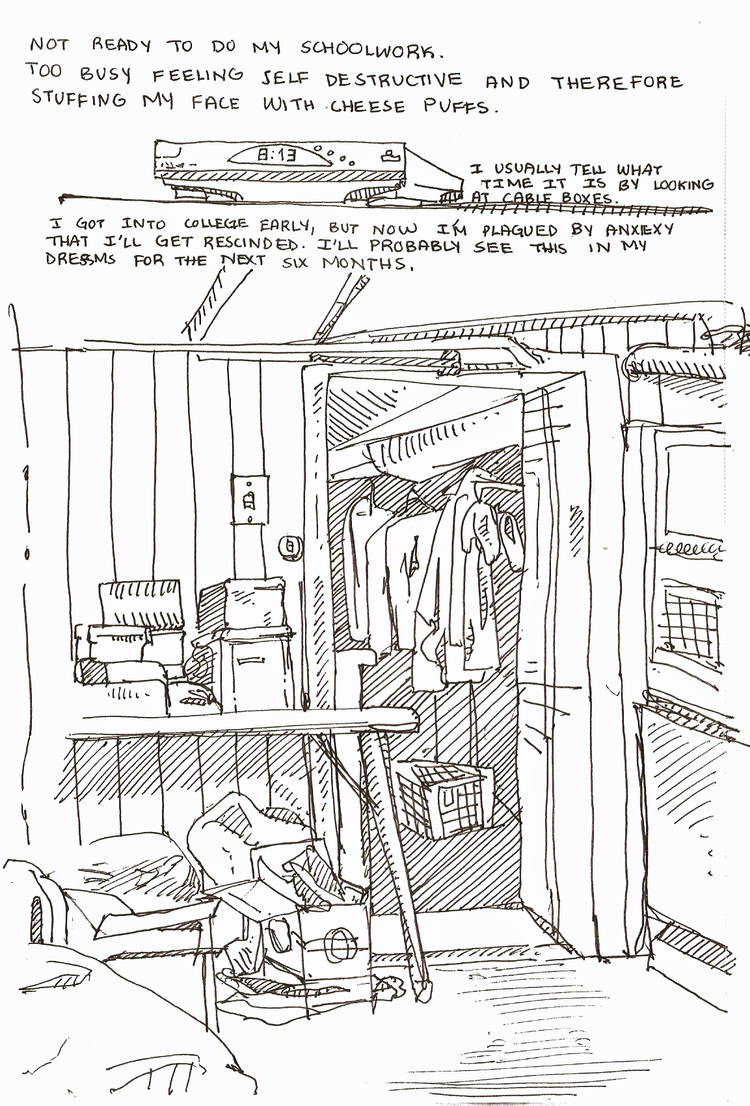 NOT READY TO DO MY SCHOOLWORK.
TOO BUSY FEELING SELF DESTRUCTIVE AND THEREFORE
STUFFING MY FACE WITH CHEESE PUFFS.
8:13
I USUALLY TELL WHAT
TIME IT IS BY LOOKING
AT CABLE BOXES.
I GOT INTO COLLEGE EARLY, BUT NOW I'M PLAGUED BY ANXIEXY
THAT I'LL GET RESCINDED. I'LL PROBABLY SEE THIS IN MY
DREAMS FOR THE NEXT SIX MONTHS.